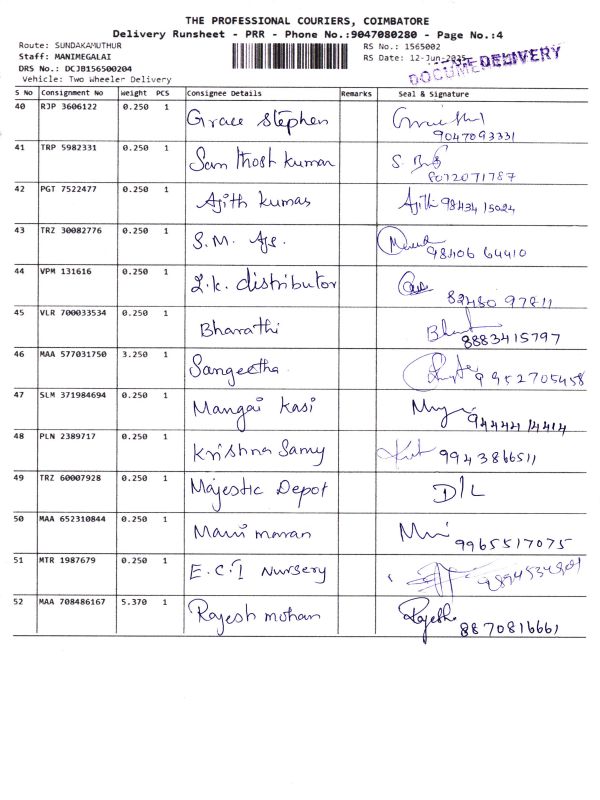 THE PROFESSIONAL COURIERS, COIMBATORE
Delivery Runsheet - PRR - Phone No.:9047080280 - Page No.:4
Route: SUNDAKAMUTHUR RS No.: 1565002
Staff: MANIMEGALAI RS Date: 12-Jun-2025
DRS No.: DCJB156500204 DOCUMENT DELIVERY
Vehicle: Two Wheeler Delivery
S No Consignment No Weight PCS Consignee Details Remarks Seal & Signature
40 RJP 3606122 0.250 1 Grace Stephen
9047093331
41 TRP 5982331 0.250 1 San thosh kumar
8072071787
42 PGT 7522477 0.250 1 Ajith kumar Ajith 98434 15024
43 TRZ 30082776 0.250 1 S.M.
98406 64410
44 VPM 131616 0.250 1 L.k. distributor
82480 97811
45 VLR 700033534 0.250 1 Bharathi
8883415797
46 MAA 577031750 3.250 1 Sangeetha 9952705458
47 SLM 371984694 0.250 1 Mangai Kasi
94444 14414
48 PLN 2389717 0.250 1 Krishna Samy 9943866511
49 TRZ 60007928 0.250 1 Majestic Depot D/L
50 MAA 652310844 0.250 1 Mani maran
9965517075
51 MTR 1987679 0.250 1 E.C.I Nursery
52 MAA 708486167 5.370 1 Rajesh mohan Rajesh
8870816661